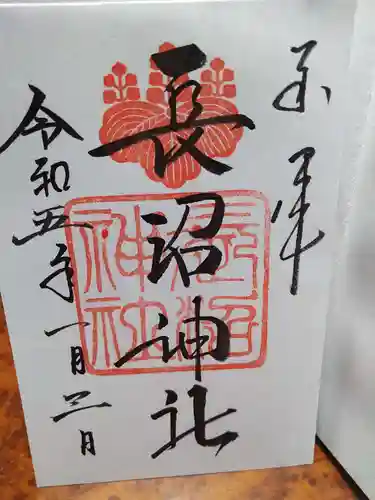 奉拝
長沼神社
令和五年一月三日
長沼神社